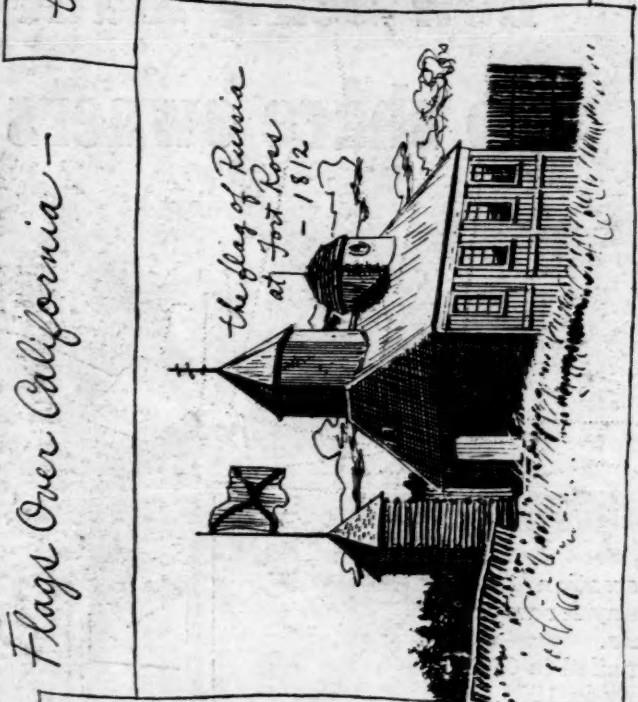 Flags Over California –
the flag of Russia
at Fort Ross
– 1812